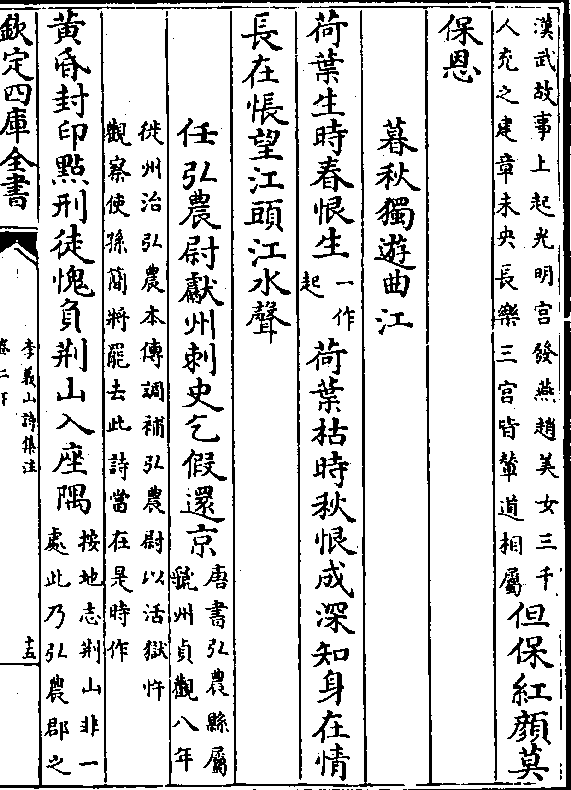 漢武故事上起光明宫發燕趙美女三千
人充之建章未央長樂三宫皆輦道相屬
但保紅顔莫
保恩
暮秋獨遊曲江
荷葉生時春恨生
一作
起
荷葉枯時秋恨成深知身在情
長在悵望江頭江水聲
任弘農尉獻州刺史乞假還京
唐書弘農縣屬
虢州貞觀八年
徙州治弘農本傳調補弘農尉以活獄忤
觀察使孫簡將罷去此詩當在是時作
黄昏封印點刑徒愧負荆山入座隅
按地志荆山非一
處此乃弘農郡之
欽定四庫全書
李義山詩集注
卷二下
十五